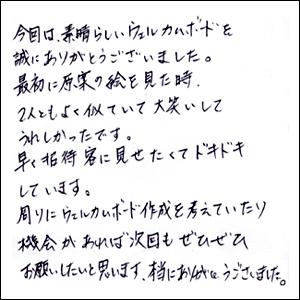 今回は、素晴らしいウェルカムボードを
誠にありがとうございました。
最初に原案の絵を見た時、
2人ともよく似ていて大笑いして
うれしかったです。
早く招待客に見せたくてドキドキ
しています。
周りにウェルカムボード作成を考えていたり
機会があれば次回もぜひぜひ
お願いしたいと思います。本当にありがとうございました。